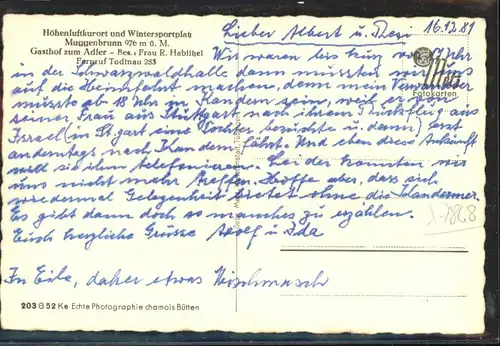 Höhenluftkurort und Wintersportplatz
Muggenbrunn 976 m ü. M.
Gasthof zum Adler - Bes.: Frau R. Hablitzel
Fernruf Todtnau 283
16.12.81
Lieber Albert u.
Wir waren bis kurz vor Uhr
in der Schwarzwaldhalle dann mussten wir uns
auf die Heimfahrt machen, denn mein
müsste ab 18 Uhr in Kandern sein, weil er von
seiner Frau aus Stuttgart nach ihrem Rückflug aus
Israel (in St.gart eine Tochter u. dann) erst
andentags nach Kandern fährt. Und eben diese Ankunft
will sie ihm telefonieren. Leider konnten wir
uns nicht mehr treffen. Hoffe aber, dass sich
wiedermal Gelegenheit bietet ohne die Kanderner.
Es gibt dann doch so manches zu erzählen.
Euch herzliche Grüsse Adolf u. Ida
In Eile, daher etwas Mischmasch
Fotokarten
203 G 52 Ke Echte Photographie chamois Bütten